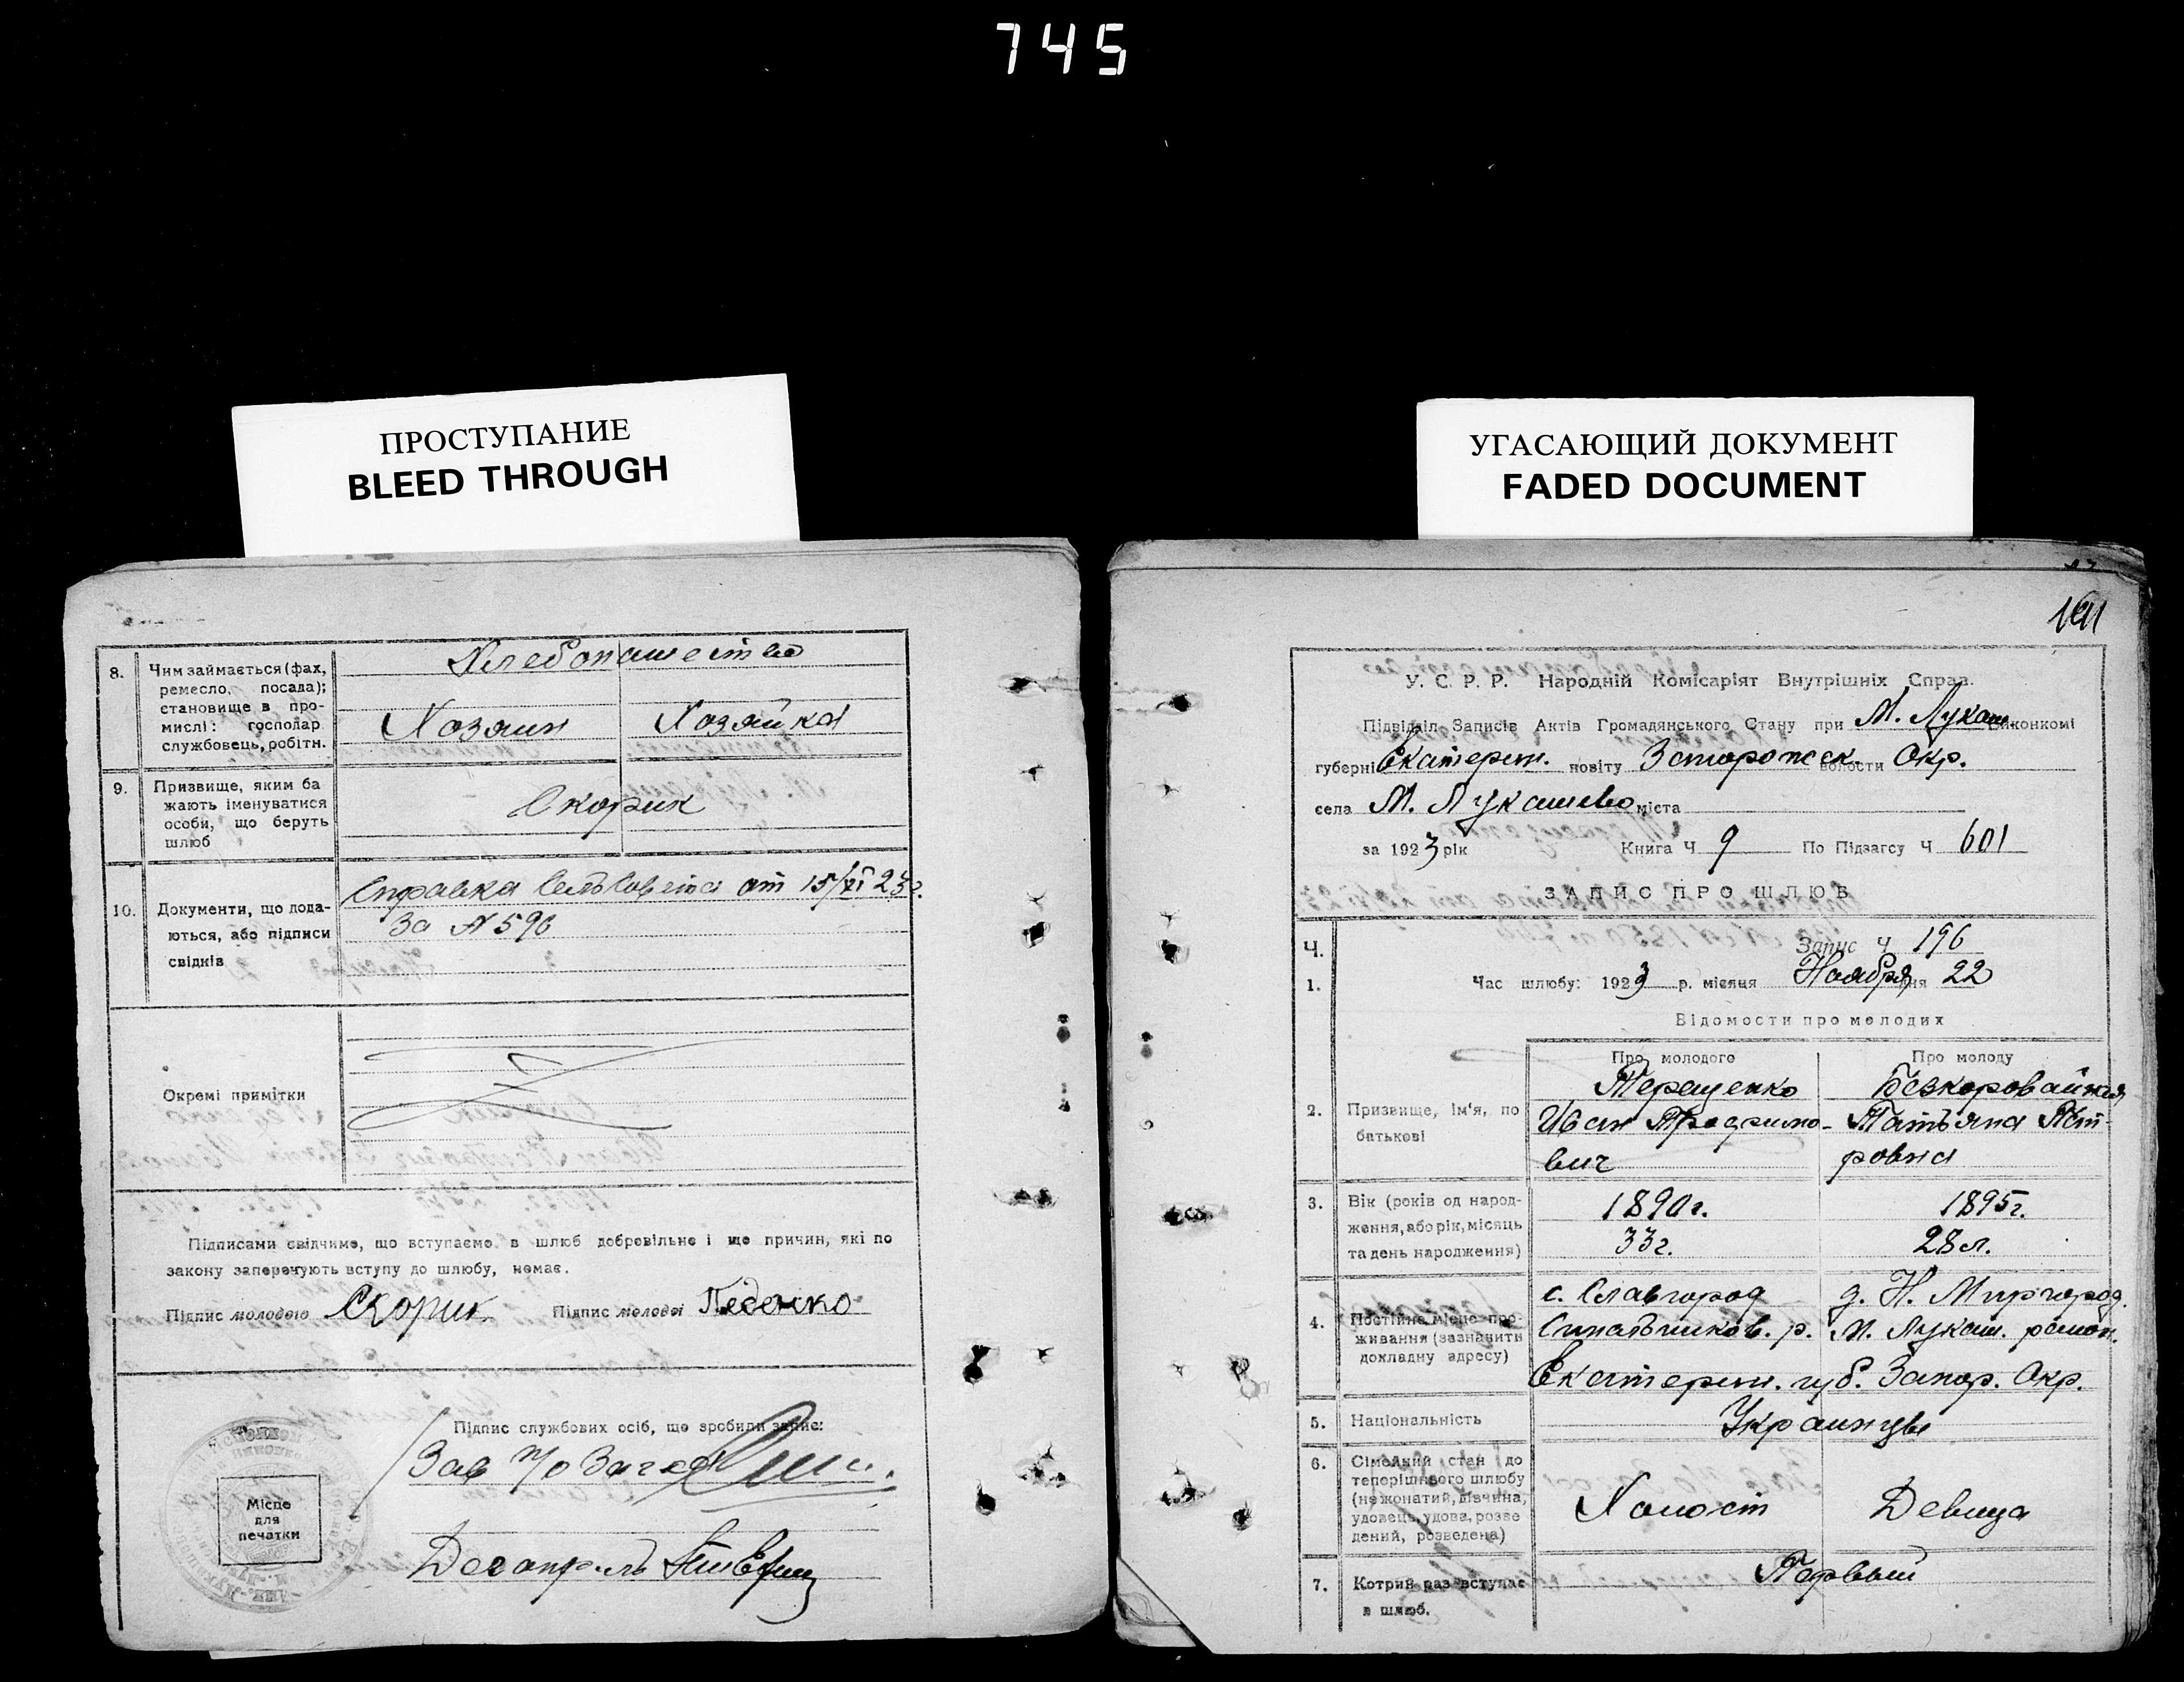 745
ПРОСТУПАНИЕ
BLEED THROUGH
УГАСАЮЩИЙ ДОКУМЕНТ
FADED DOCUMENT
8. Чим займається (фах,
ремесло, посада);
становище в про-
мислі: господар
службовець, робітн.
Хлебопашество
Хозяин Хозяйка
9. Призвище, яким ба
жають іменуватися
особи, що беруть
шлюб
Скорик
10. Документи, що дода-
ються, або підписи
свідків
Справка от 15/XI 23г.
За N 590
Окремі примітки
Підписами свідчимо, що вступаємо в шлюб добровільне і ще причин, які по
закону заперечують вступу до шлюбу, немає.
Підпис молодого Скорик Підпис молодої Педенко
Підпис службових осіб, що зробили запис:
Зав п/о Загса
Місце
для
печатки
Делопр-ль
У. С. Р. Р. Народній Комісаріят Внутрішніх Справ.
Підвідділ Записів Актів Громадянського Стану при М. Лукаш. виконкомі
губерні Екатерин. повіту Запорожск. волости Окр.
села М. Лукашево міста
за 1923 рік Книга Ч 9 По Підзагсу Ч 601
ЗАПИС ПРО ШЛЮБ
Ч. Запис Ч 196
1. Час шлюбу: 1923 р. місяця Ноября дня 22
Відомости про молодих
Про молодого Про молоду
2. Призвище, ім'я, по
батькові
Терещенко Безкоровайная
Иван Трофимо- Татьяна Пет-
вич ровна
3. Вік (років од народ-
ження, або рік, місяць
та день народження)
1890г. 1895г.
33г. 28л.
4. Постійне місце про-
живання (зазначити
докладну адресу)
с. Славгород д. Н. Миргород.
Синельников. р. М. Лукаш. район.
Екатерин. губ. Запор. Окр.
5. Національність Украинцы
6. Сімейний стан до
теперішнього шлюбу
(нежонатий, дівчина,
удовець, удова, розве
дений, розведена)
Холост Девица
7. Котрий раз вступає
в шлюб.
Первый